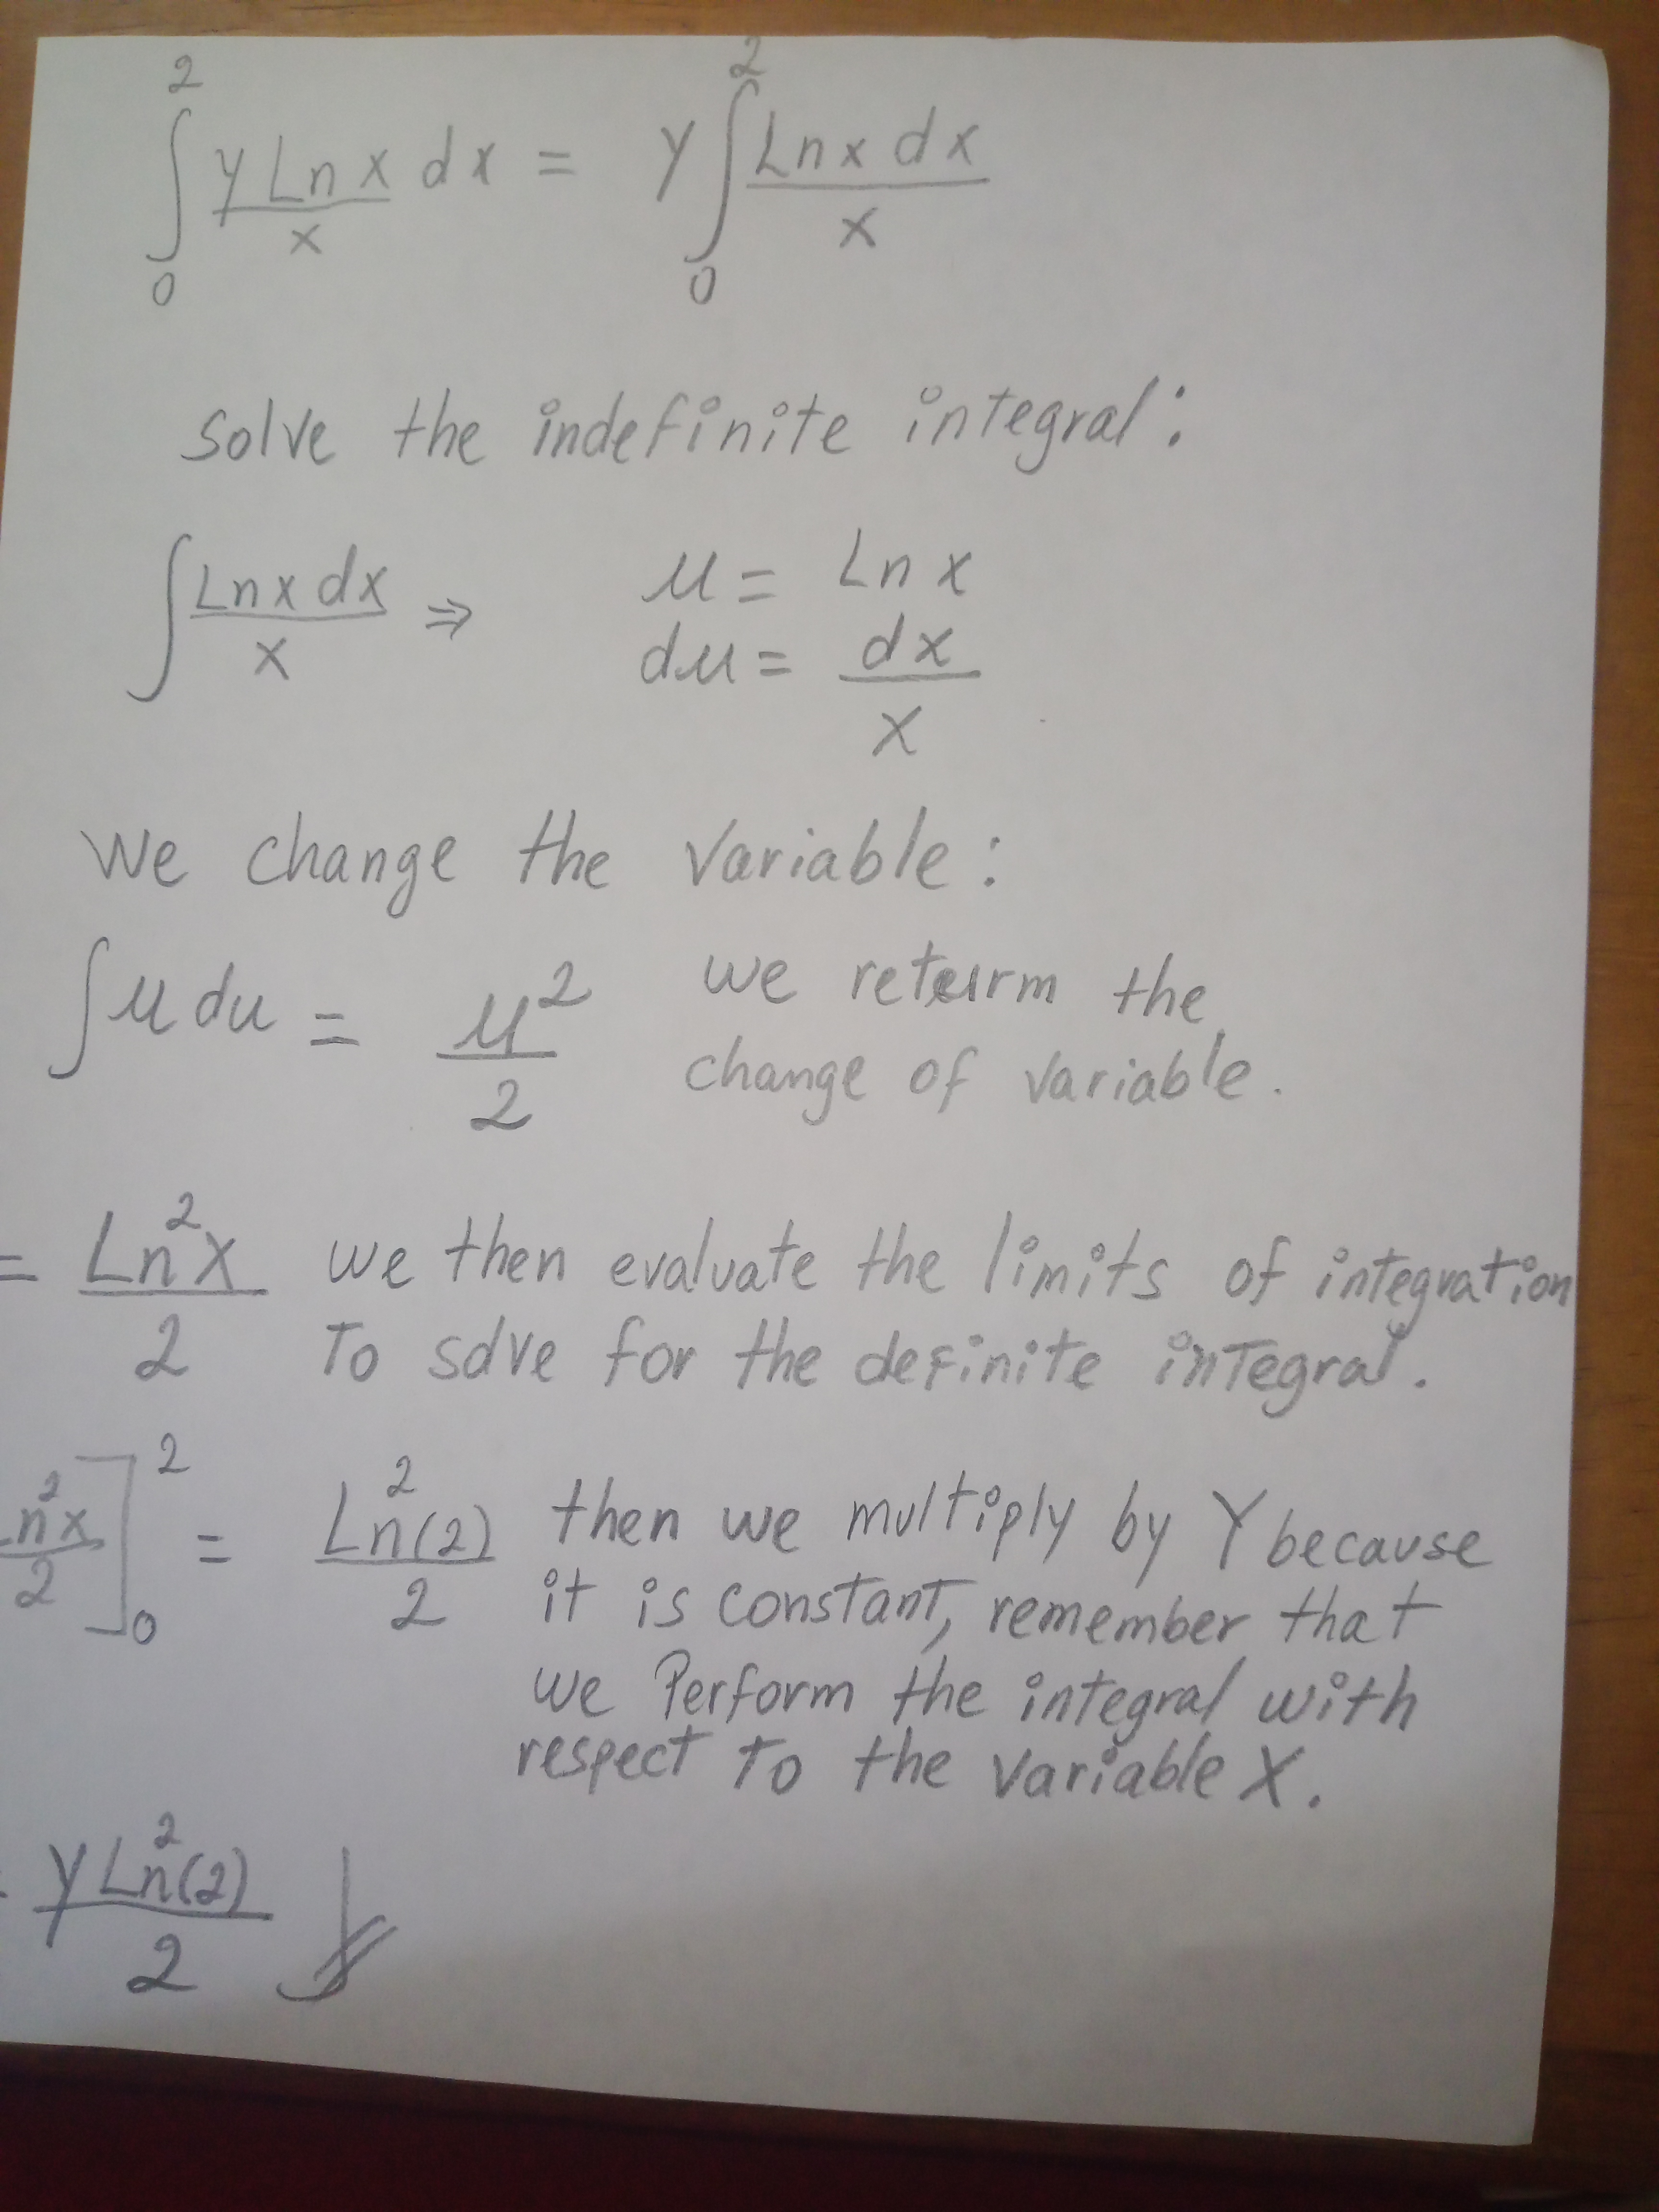 ∫₀² y Ln x / x dx = y ∫₀² Ln x dx / x
solve the indefinite integral:
∫ Ln x dx / x ⇒ u = Ln x
du = dx / x
we change the variable:
∫ u du = u² / 2 we returm the
change of variable.
= Ln² x / 2 we then evaluate the limits of integration
To solve for the definite inTegral.
n² x / 2 ]₀² = Ln² (2) / 2 then we multiply by Y because
it is constanT, remember that
we Perform the integral with
respect To the variable X.
y Ln² (2) / 2